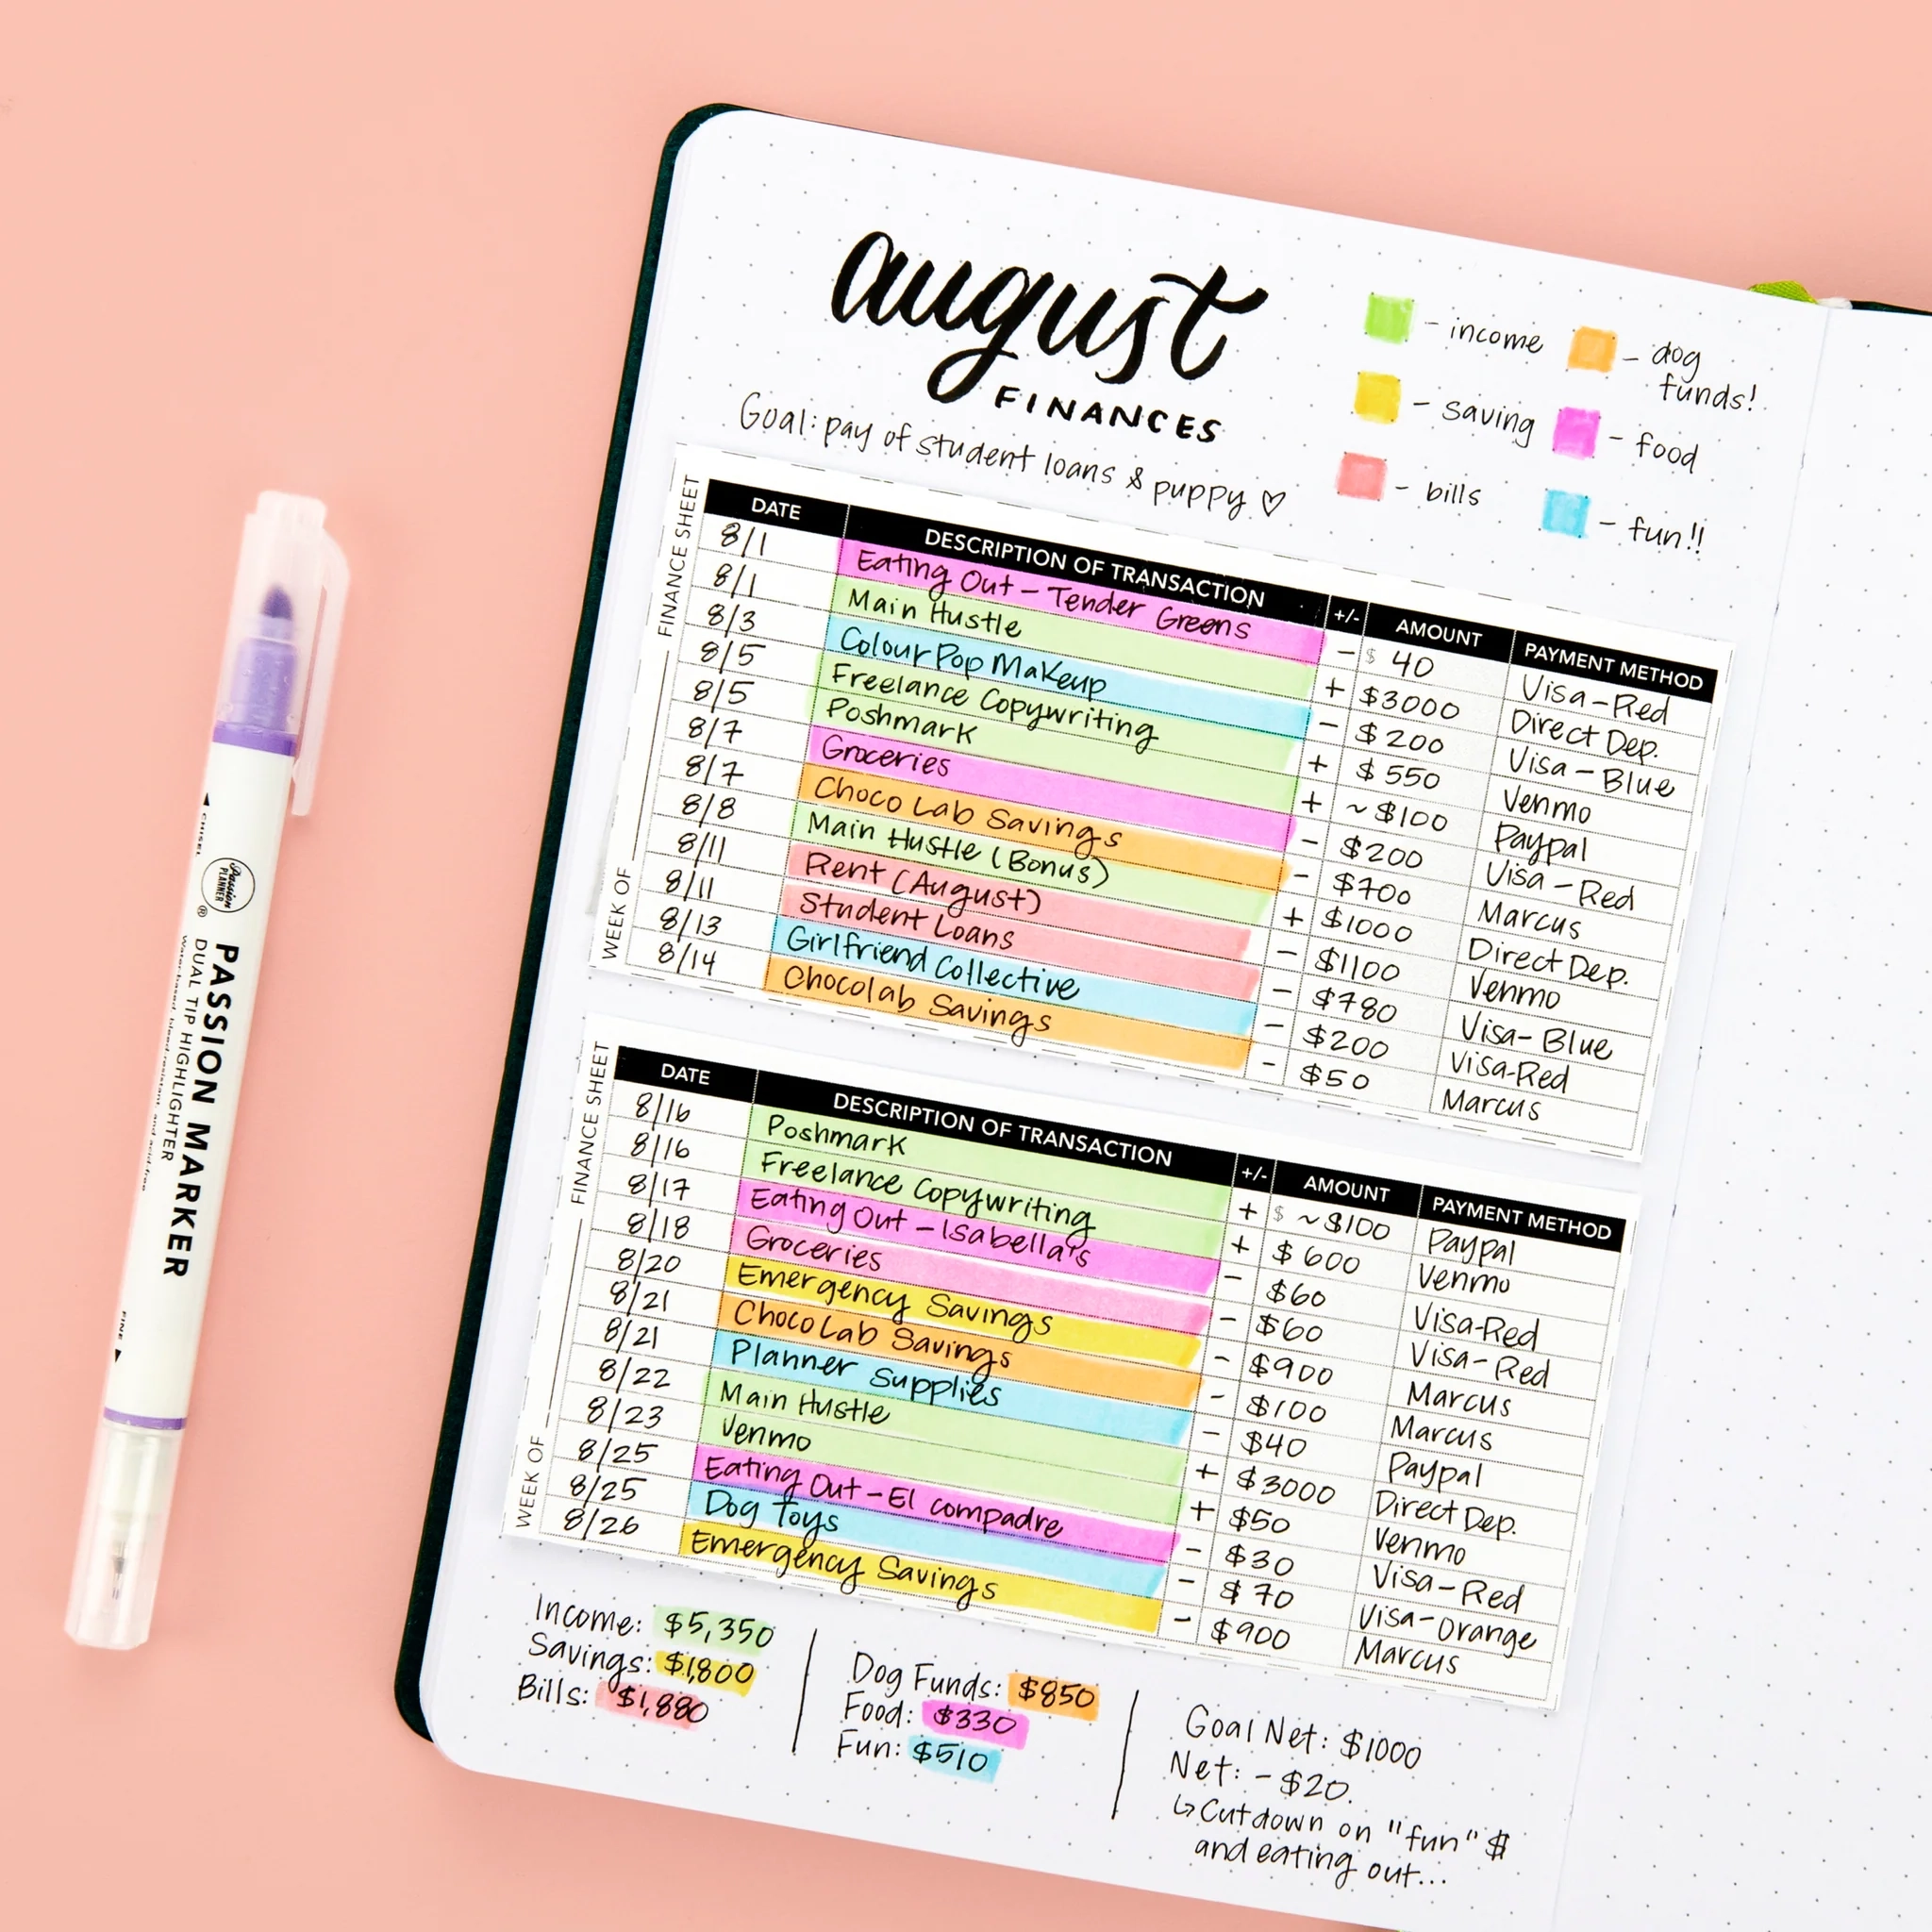 august
FINANCES
Goal: pay of student loans & puppy ♡
- income
- saving
- bills
- dog
funds!
- food
- fun!!
FINANCE SHEET
WEEK OF
DATE DESCRIPTION OF TRANSACTION +/- AMOUNT PAYMENT METHOD
8/1 Eating Out - Tender Greens - $ 40 Visa-Red
8/1 Main Hustle + $3000 Direct Dep.
8/3 ColourPop Makeup - $200 Visa-Blue
8/5 Freelance Copywriting + $550 Venmo
8/5 Poshmark + ~$100 Paypal
8/7 Groceries - $200 Visa-Red
8/7 Choco Lab Savings - $700 Marcus
8/8 Main Hustle (Bonus) + $1000 Direct Dep.
8/11 Rent (August) - $1100 Venmo
8/11 Student Loans - $780 Visa-Blue
8/13 Girlfriend Collective - $200 Visa-Red
8/14 Chocolab Savings - $50 Marcus
FINANCE SHEET
WEEK OF
DATE DESCRIPTION OF TRANSACTION +/- AMOUNT PAYMENT METHOD
8/16 Poshmark + $ ~$100 Paypal
8/16 Freelance Copywriting + $600 Venmo
8/17 Eating Out - Isabella's - $60 Visa-Red
8/18 Groceries - $60 Visa-Red
8/20 Emergency Savings - $900 Marcus
8/21 Choco Lab Savings - $100 Marcus
8/21 Planner Supplies - $40 Paypal
8/22 Main Hustle + $3000 Direct Dep.
8/23 Venmo + $50 Venmo
8/25 Eating Out - El compadre - $30 Visa-Red
8/25 Dog Toys - $70 Visa-Orange
8/26 Emergency Savings - $900 Marcus
Income: $5,350
Savings: $1,800
Bills: $1,880
Dog Funds: $850
Food: $330
Fun: $510
Goal Net: $1000
Net: -$20.
↳Cutdown on "fun" $
and eating out...
CHISEL
Passion
PLANNER
®
PASSION MARKER
DUAL TIP HIGHLIGHTER
FINE